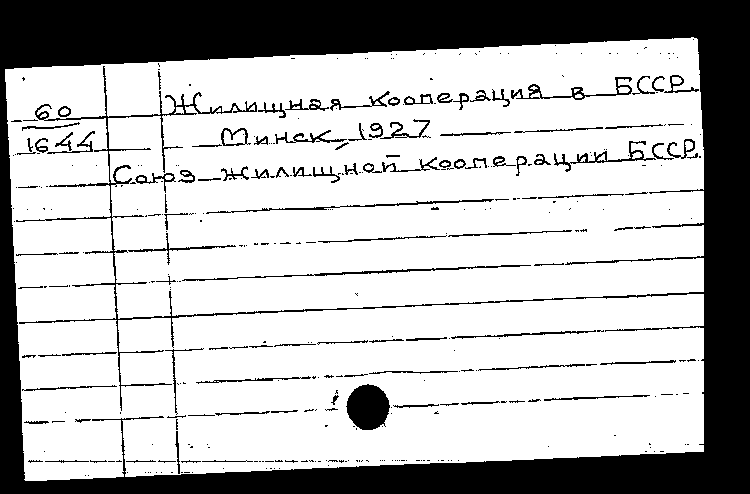 60
Жилищная кооперация в БССР.
1644
Минск, 1927
Союз жилищной кооперации БССР.